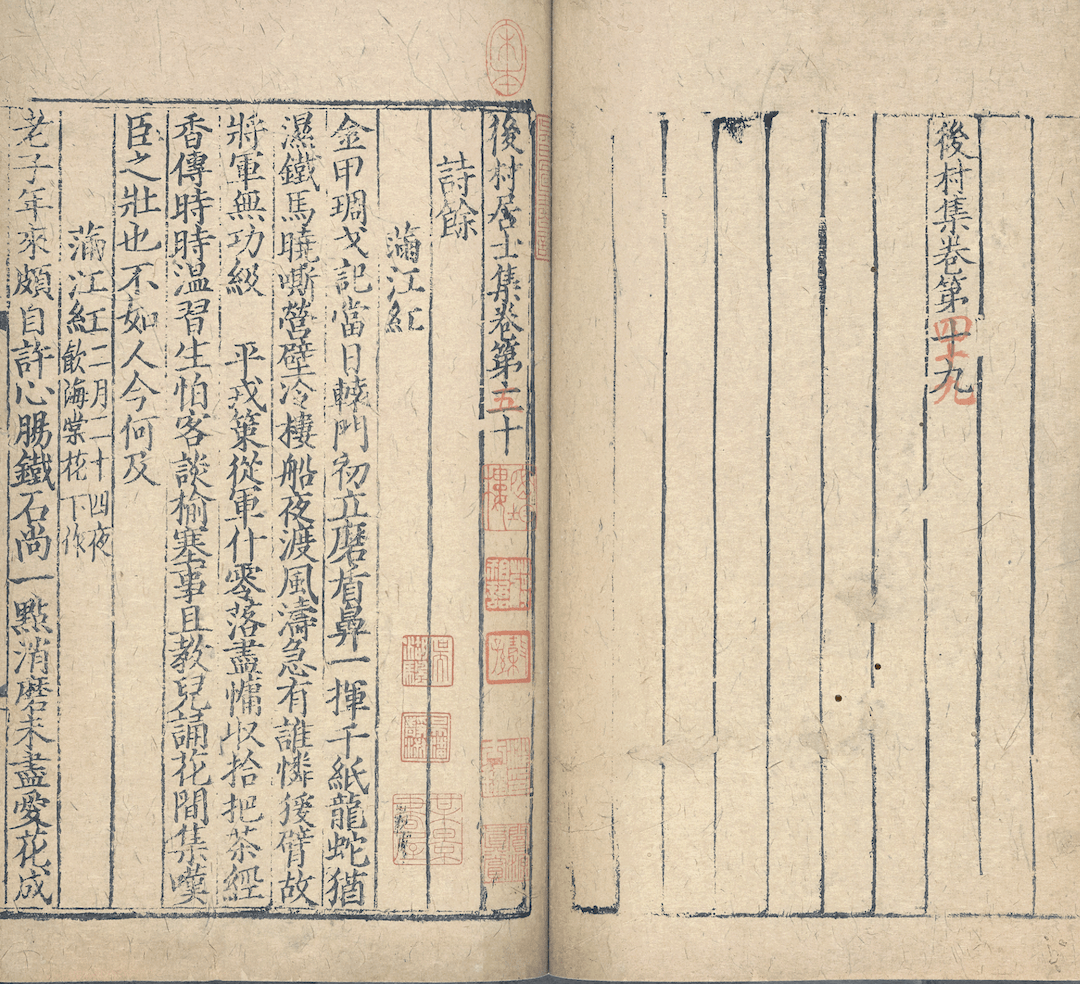 後村集卷第四十九
後村居士集卷第五十
詩餘
滿江紅
金甲琱戈記當日轅門初立磨盾鼻一揮千紙龍蛇猶
濕鐵馬曉嘶營壁冷樓船夜渡風濤急有誰憐猨臂故
將軍無功級　平戎策從軍什零落盡慵收拾把茶經
香傳時時温習生怕客談榆塞事且教兒誦花間集嘆
臣之壯也不如人今何及
滿江紅
二月二十四夜
飲海棠花下作
老子年來頗自許心腸鐵石尚一點消磨未盡愛花成